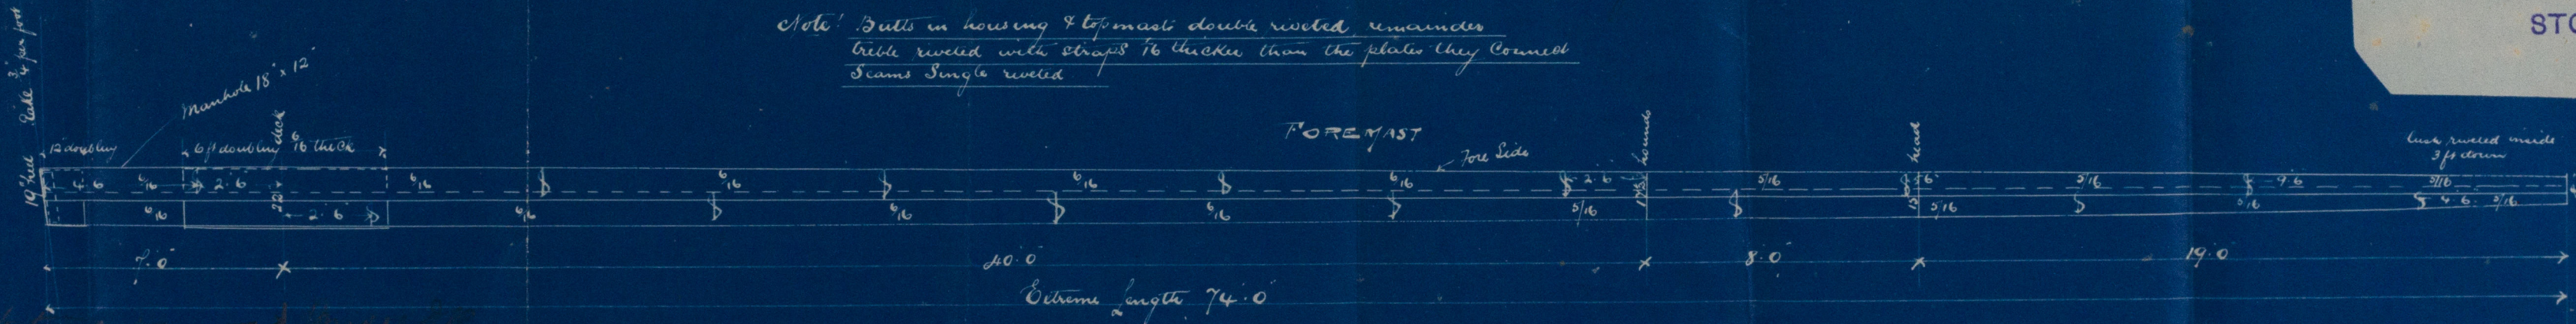 Note! Butts in housing & topmasts double riveted, remainder
treble riveted with straps 1/16 thicker than the plates they connect
Seams Single riveted
STO
Rake 3/4" per foot
Manhole 18" x 12"
FOREMAST
Fore Side
12" doubling
6 ft doubling 6/16 thick
deck
hounds
head
riveted inside
3 ft down
19" heel
4' 6 6/16 2' 6" 6/16 6/16 6/16 6/16 2' 6 5/16 6" 5/16 9' 6 5/16
22"
6/16 2' 6" 6/16 6/16 6/16 5/16 5/16 5/16 4' 6 5/16
7' 0" 40' 0" 8' 0" 19' 0"
Extreme Length 74' 0"